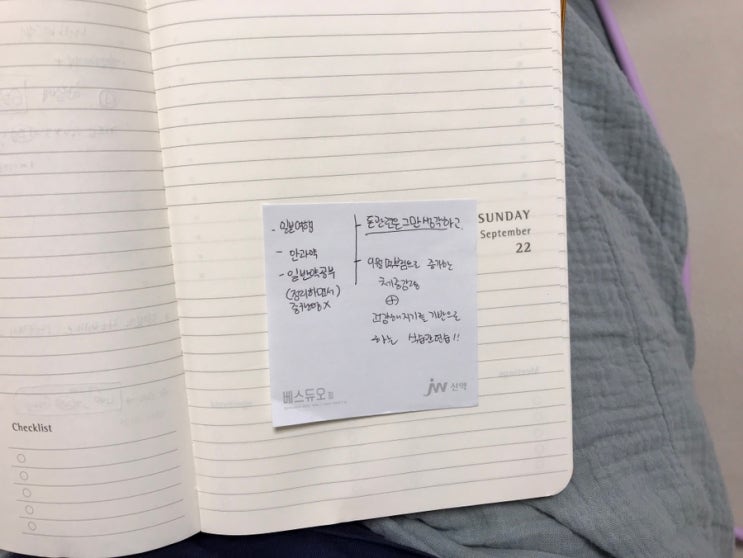 SUNDAY
September
22
- 일본여행
- 안과약
- 일반약공부
(정리하면서)
돈관련은 그만 생각하고
9월 증가하는
체중감량
⊕
건강해지기를 기반으로
하는 식습관연습!!
베스듀오정
JW 신약
Checklist